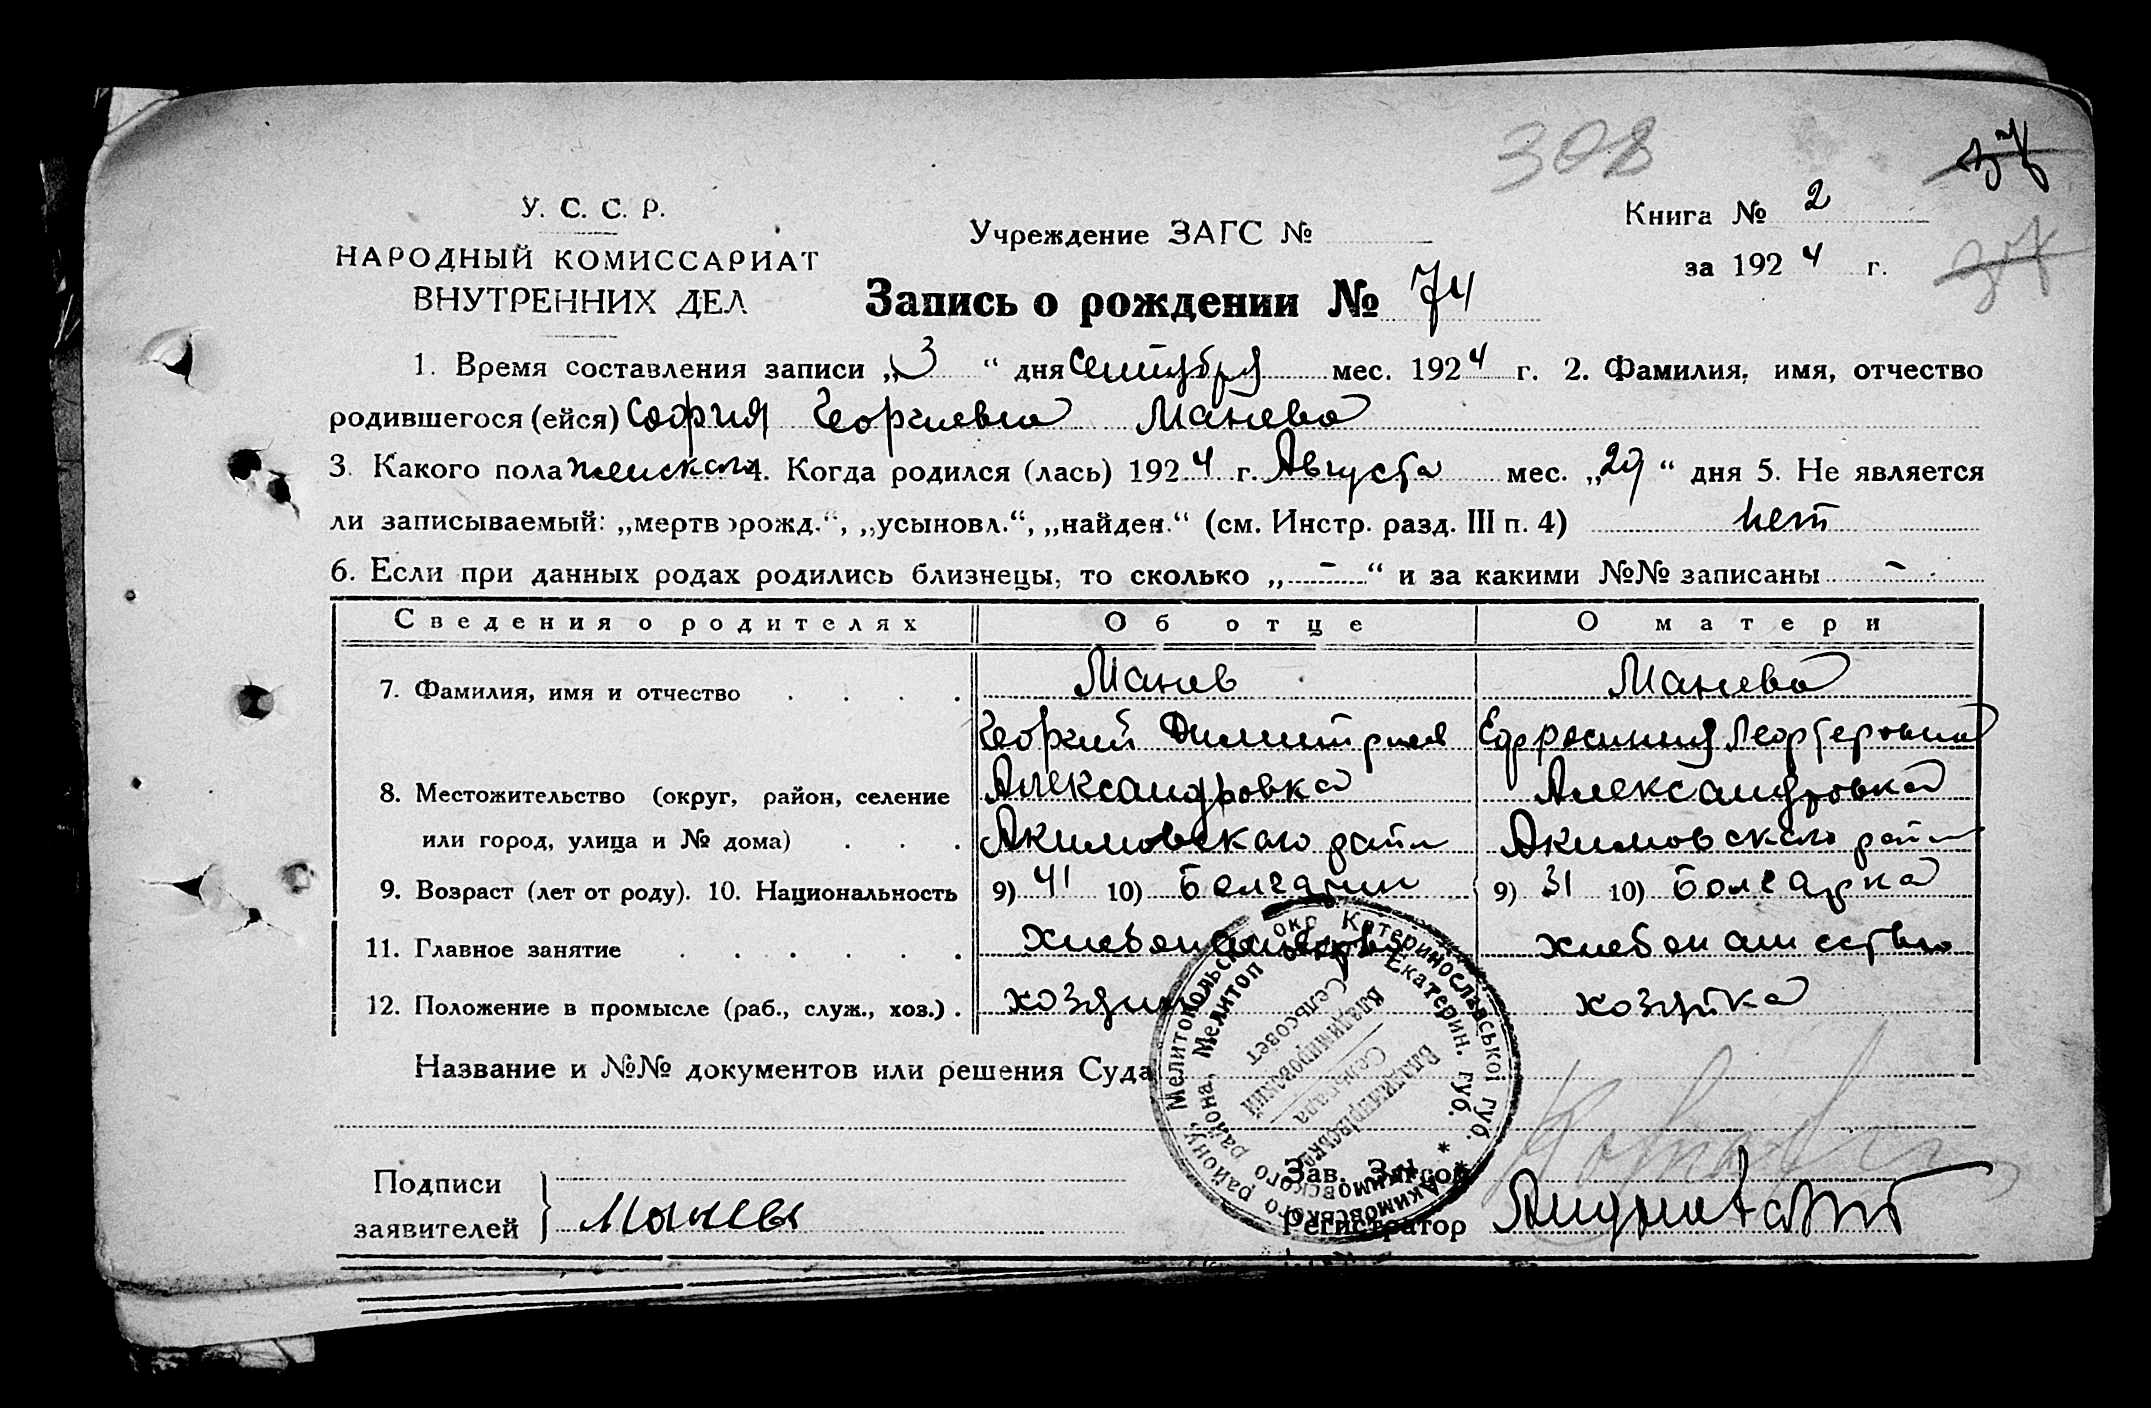 308
У. С. С. Р.
НАРОДНЫЙ КОМИССАРИАТ
ВНУТРЕННИХ ДЕЛ
Учреждение ЗАГС №
Книга № 2
за 1924 г.
Запись о рождении № 74
1. Время составления записи „3“ дня Сентября мес. 1924 г. 2. Фамилия, имя, отчество
родившегося (ейся) София Георгиевна Манева
3. Какого пола женского 4. Когда родился (лась) 1924 г. Августа мес. „29“ дня 5. Не является
ли записываемый: „мертворожд.“, „усыновл.“, „найден.“ (см. Инстр. разд. III п. 4) нет
6. Если при данных родах родились близнецы, то сколько „ – “ и за какими №№ записаны –
Сведения о родителях Об отце О матери
7. Фамилия, имя и отчество . . . . Манев Манева
Георгий Димитриев Ефросиния
8. Местожительство (округ, район, селение Александровка Александровка
или город, улица и № дома) . . . Акимовского район Акимовского район
9. Возраст (лет от роду). 10. Национальность 9) 41 10) Болгарин 9) 31 10) Болгарка
11. Главное занятие . . . . . . хлебопашество хлебопашество
12. Положение в промысле (раб., служ., хоз.) . хозяин хозяйка
Название и №№ документов или решения Суда
Мелитопольської окр Катеринославської губ. * Акимовського району,
Мелитоп окр Екатерин. губ. * Акимовского района,
Владимировский
Сельсовет
Владимирівська
Сельрада
Подписи
заявителей } Манев
Зав. Загсом
Регистратор